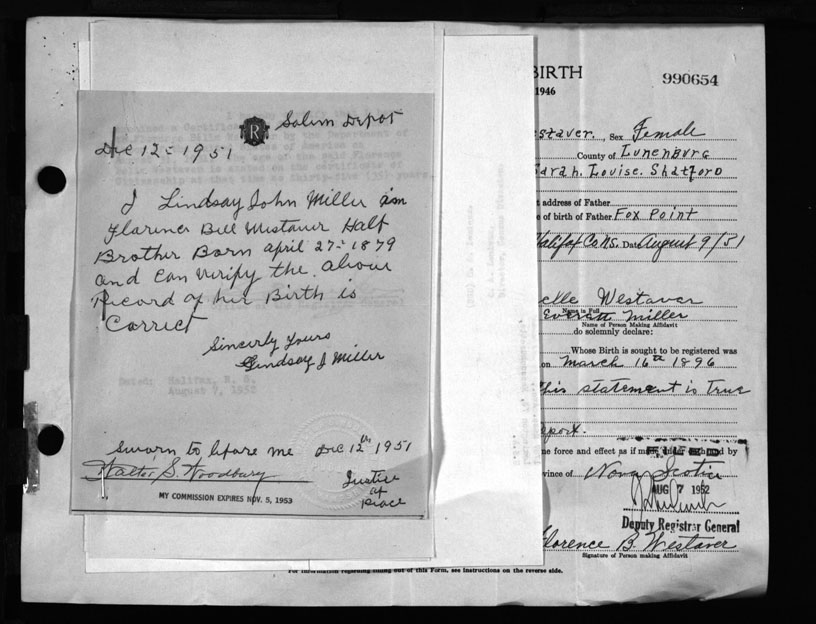 Salem Depot
Dec 12 - 1951
R
I Lindsay John Miller am
Florence Bell Westaver Half
Brother Born April 27 - 1879
and can verify the above
record of her Birth is
Correct
Sincerly Yours
Lindsay J Miller
Sworn to before me Dec 12th 1951
Walter S. Woodbury
Justice
of
Peace
MY COMMISSION EXPIRES NOV. 5, 1953
Dated: Halifax, N. S.
August 7, 1952
BIRTH
1946
990654
estaver. , Sex Female
County of Lunenburg
Sarah. Louise. Shatford
t address of Father
e of birth of Father Fox Point
Halifax Co NS. Date August 9/51
elle Westaver
Name in Full
Everett Miller
Name of Person Making Affidavit
do solemnly declare:
Whose Birth is sought to be registered was
on March 16th 1896
This statement is True
eport.
me force and effect as if made under oath by
vince of Nova Scotia
AUG 7 1952
Deputy Registrar General
Florence B. Westaver
Signature of Person making Affidavit
For information regarding filling out of this Form, see Instructions on the reverse side.